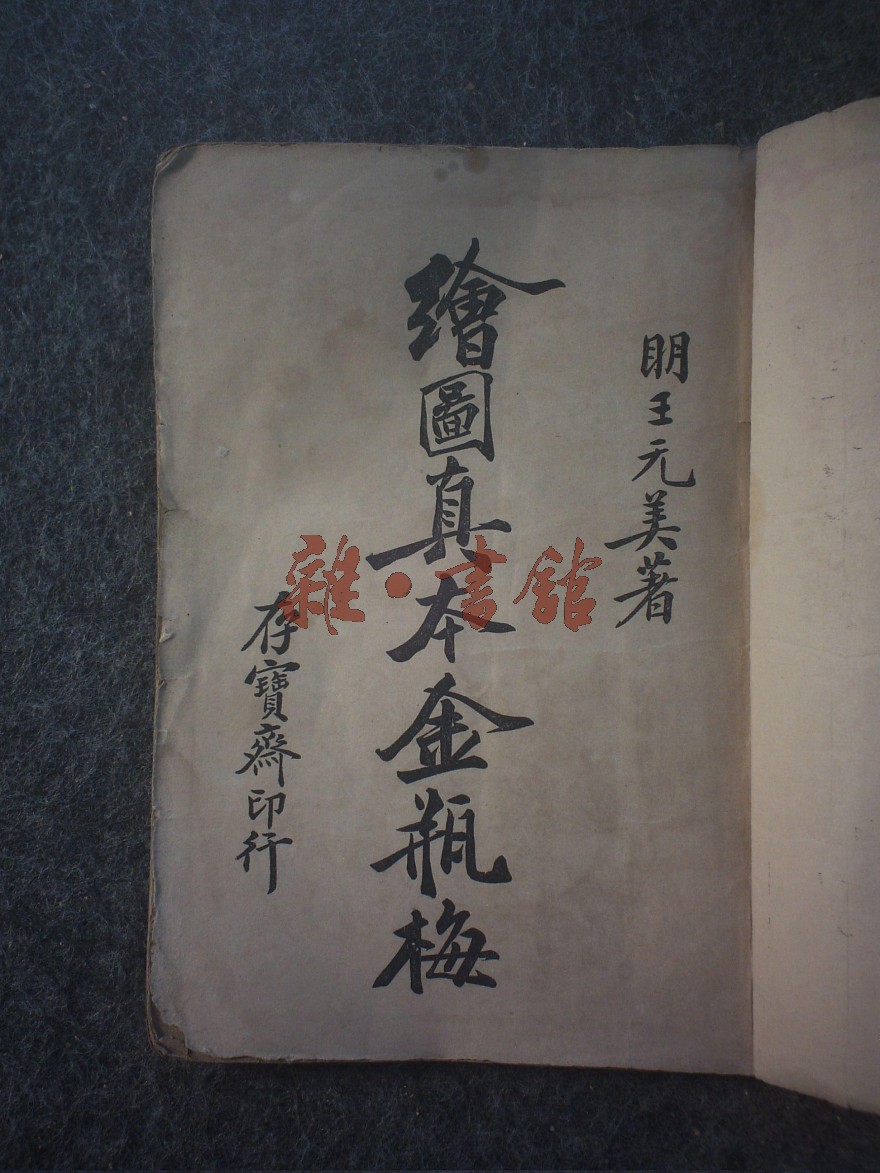 明王元美著
繪圖真本金瓶梅
存寶齋印行
雜·書館